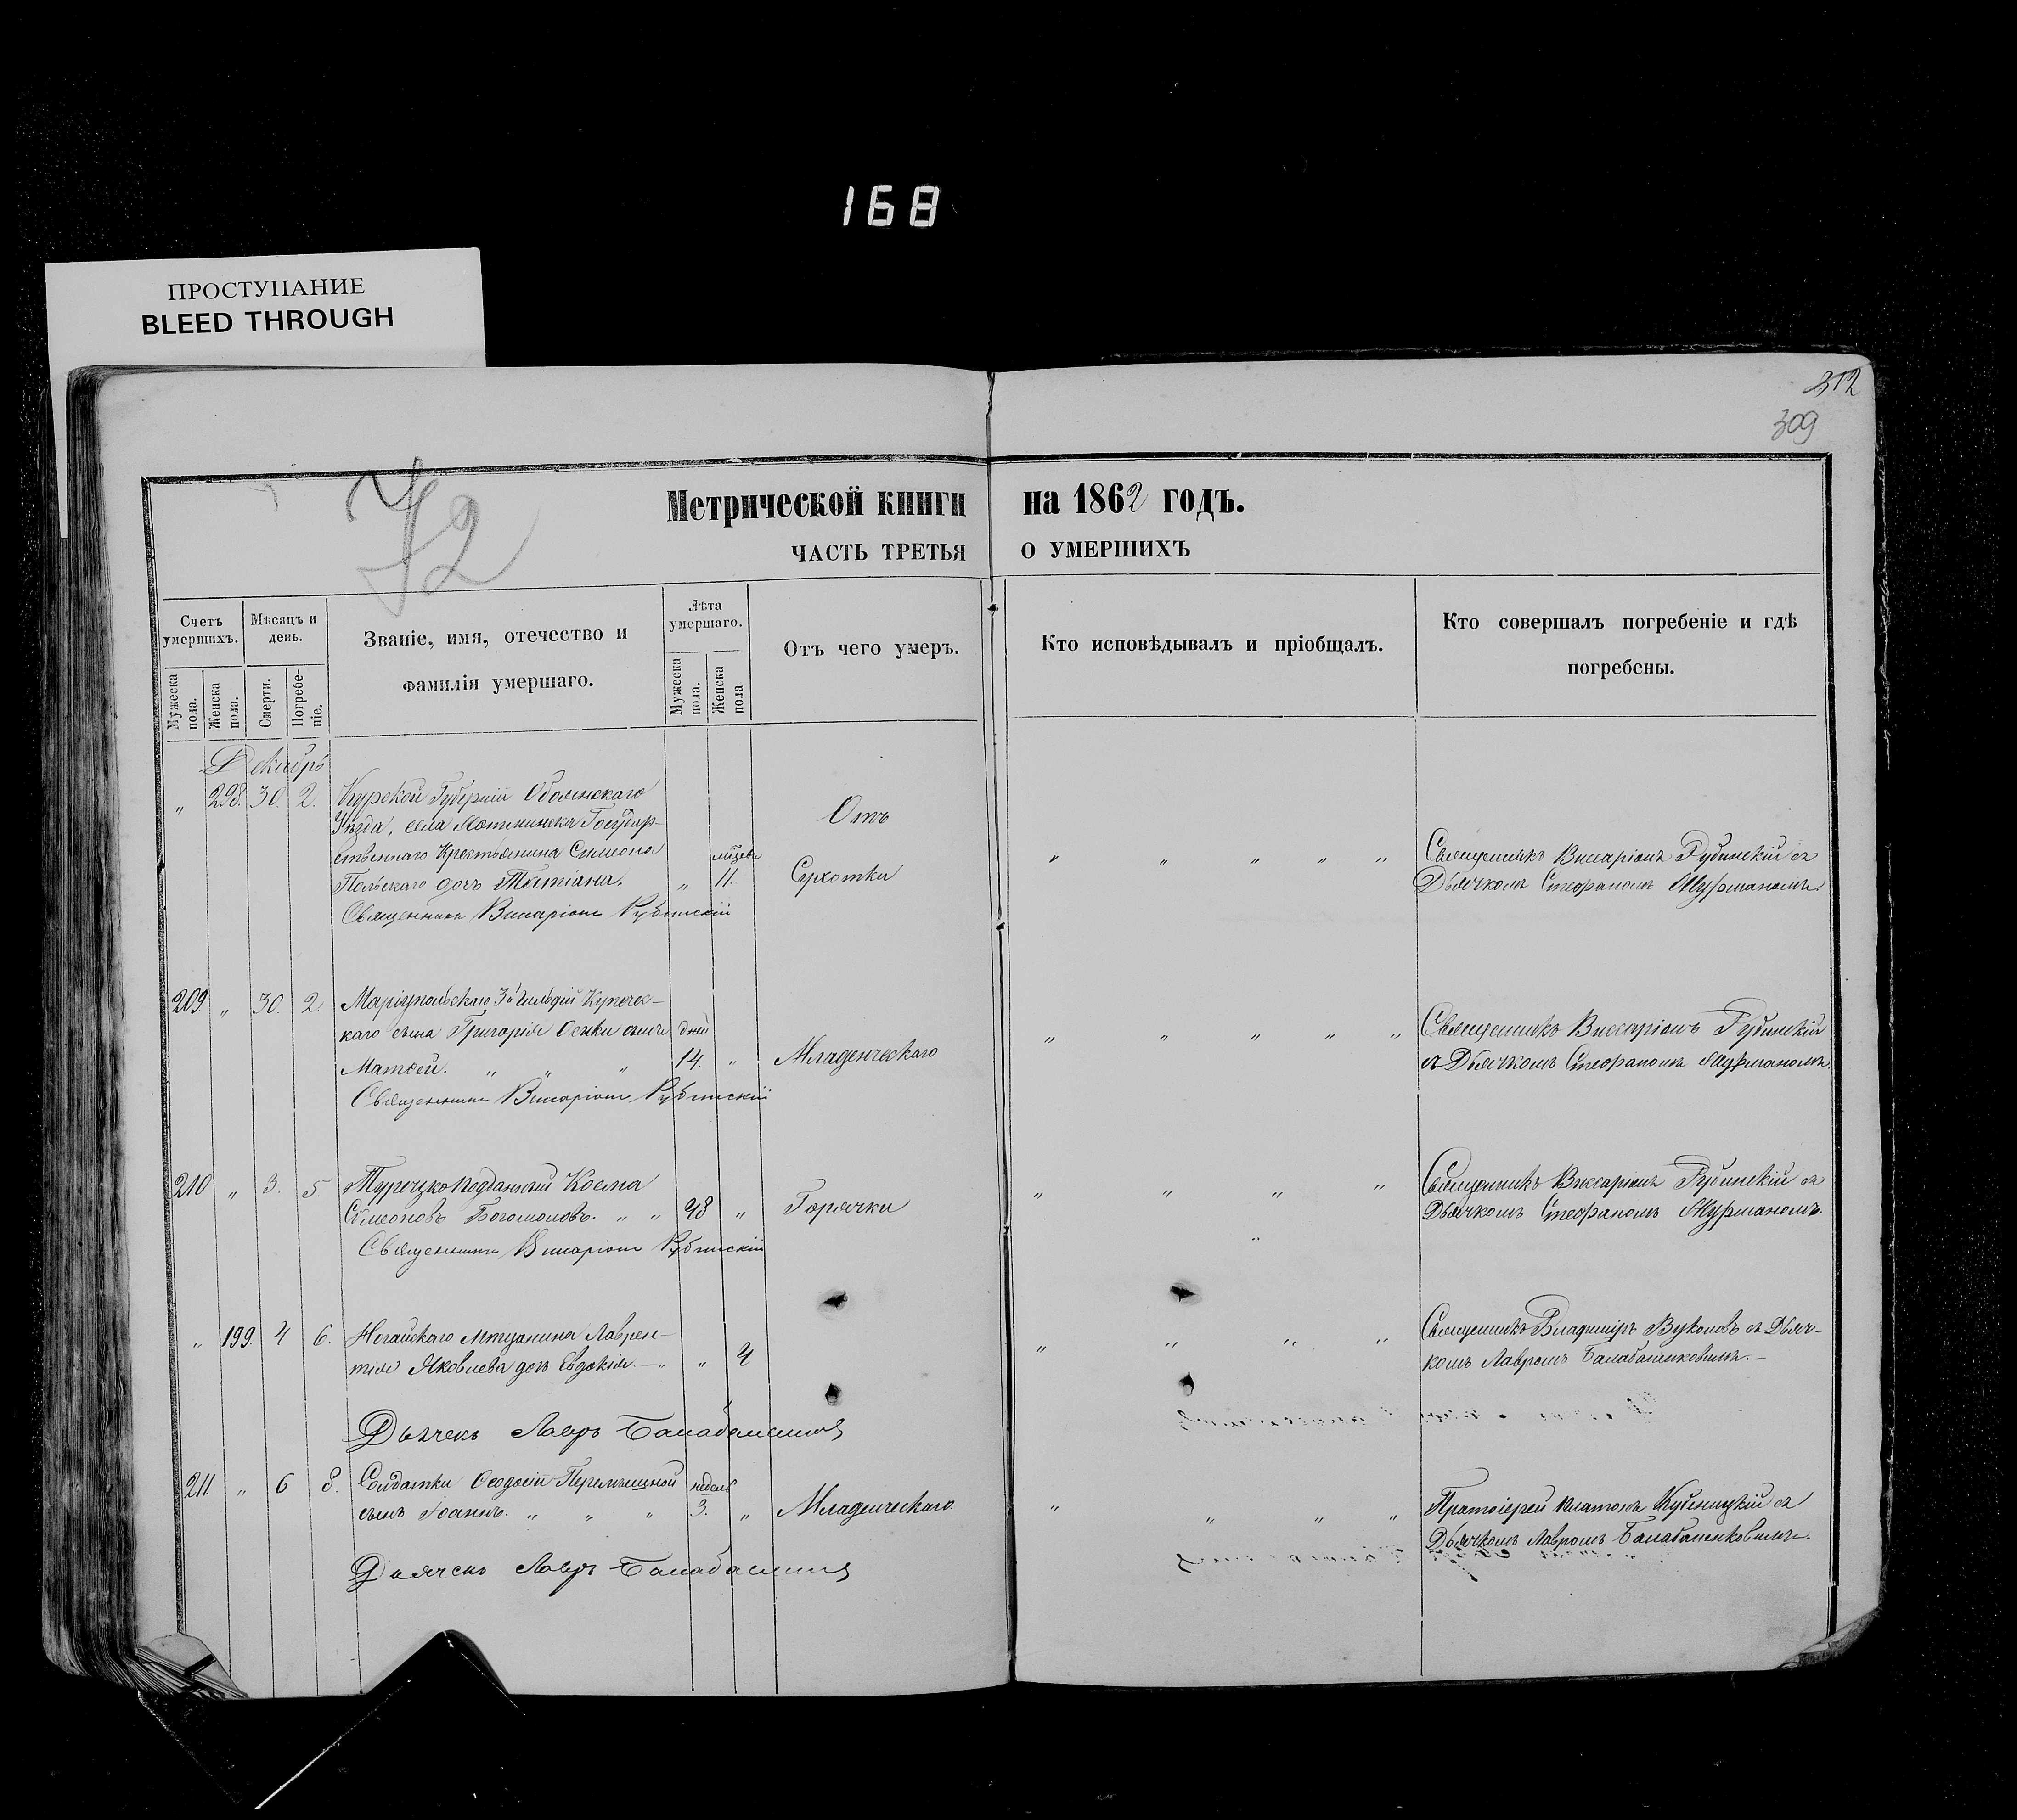 168
ПРОСТУПАНИЕ
BLEED THROUGH
312
309
72
Метрической книги на 1862 годъ.
ЧАСТЬ ТРЕТЬЯ О УМЕРШИХЪ
Счетъ умершихъ.
Мѣсяцъ и день.
Званіе, имя, отечество и фамилія умершаго.
Лѣта умершаго.
Отъ чего умеръ.
Кто исповѣдывалъ и пріобщалъ.
Кто совершалъ погребеніе и гдѣ погребены.
Мужеска пола.
Женска пола.
Смерти.
Погребеніе.
Мужеска пола.
Женска пола
Декабрь
„ 298. 30. 2. Курской Губерніи Обоянскаго
Уѣзда, села Государ-
ственнаго Крестьянина Симеона
Польскаго дочь Татіана. „ 11.
Отъ
Сухотки
„ „ „ „ „
Священникъ Виссаріонъ Рубинскій съ
Дьячкомъ Стефаномъ Журманомъ.
Священникъ Виссаріонъ Рубинскій
209. „ 30. 2. Маріупольскаго 3й Гильдіи Купечес-
каго сына Григорія сынъ дней
Матѳей. „ „ „ 14. „ Младенческаго
„ „ „ „ „
Священникъ Виссаріонъ Рубинскій
съ Дьячкомъ Стефаномъ Журманомъ.
Священникъ Виссаріонъ Рубинскій
210 „ 3. 5. Турецкоподданный Косма
Симеоновъ Богомоловъ. „ „ 48 „ Горячки
„ „ „ „
Священникъ Виссаріонъ Рубинскій съ
Дьячкомъ Стефаномъ Журманомъ.
Священникъ Виссаріонъ Рубинскій
„ 199. 4 6. Ногайскаго Мѣщанина Лаврен-
тія Яковлева дочь Евдокія. — „ „ 4
„ „ „ „
Священникъ Владиміръ Вуколовъ съ Дьяч-
комъ Лавромъ Балабаненковымъ. —
Дьячекъ Лавръ
211. „ 6 8. Солдатки Ѳеодосіи недель
сынъ Іоаннъ. „ „ „ 3. „ Младенческаго
„ „ „ „
Протоіерей Платонъ съ
Дьячкомъ Лавромъ Балабаненковымъ.
Дьячекъ Лавръ